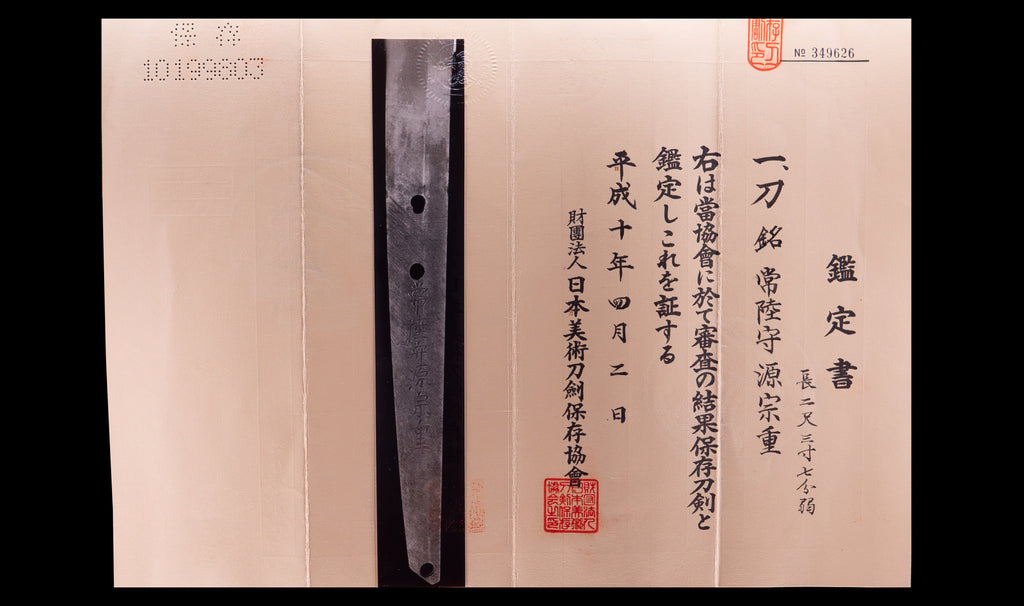 鑑定書
長二尺三寸七分弱
一、刀 銘 常陸守源宗重
右は當協會に於て審査の結果保存刀剣と
鑑定しこれを証する
平成十年四月二日
財團法人日本美術刀剣保存協會
№ 349626
保存
10199803
常陸守源宗重